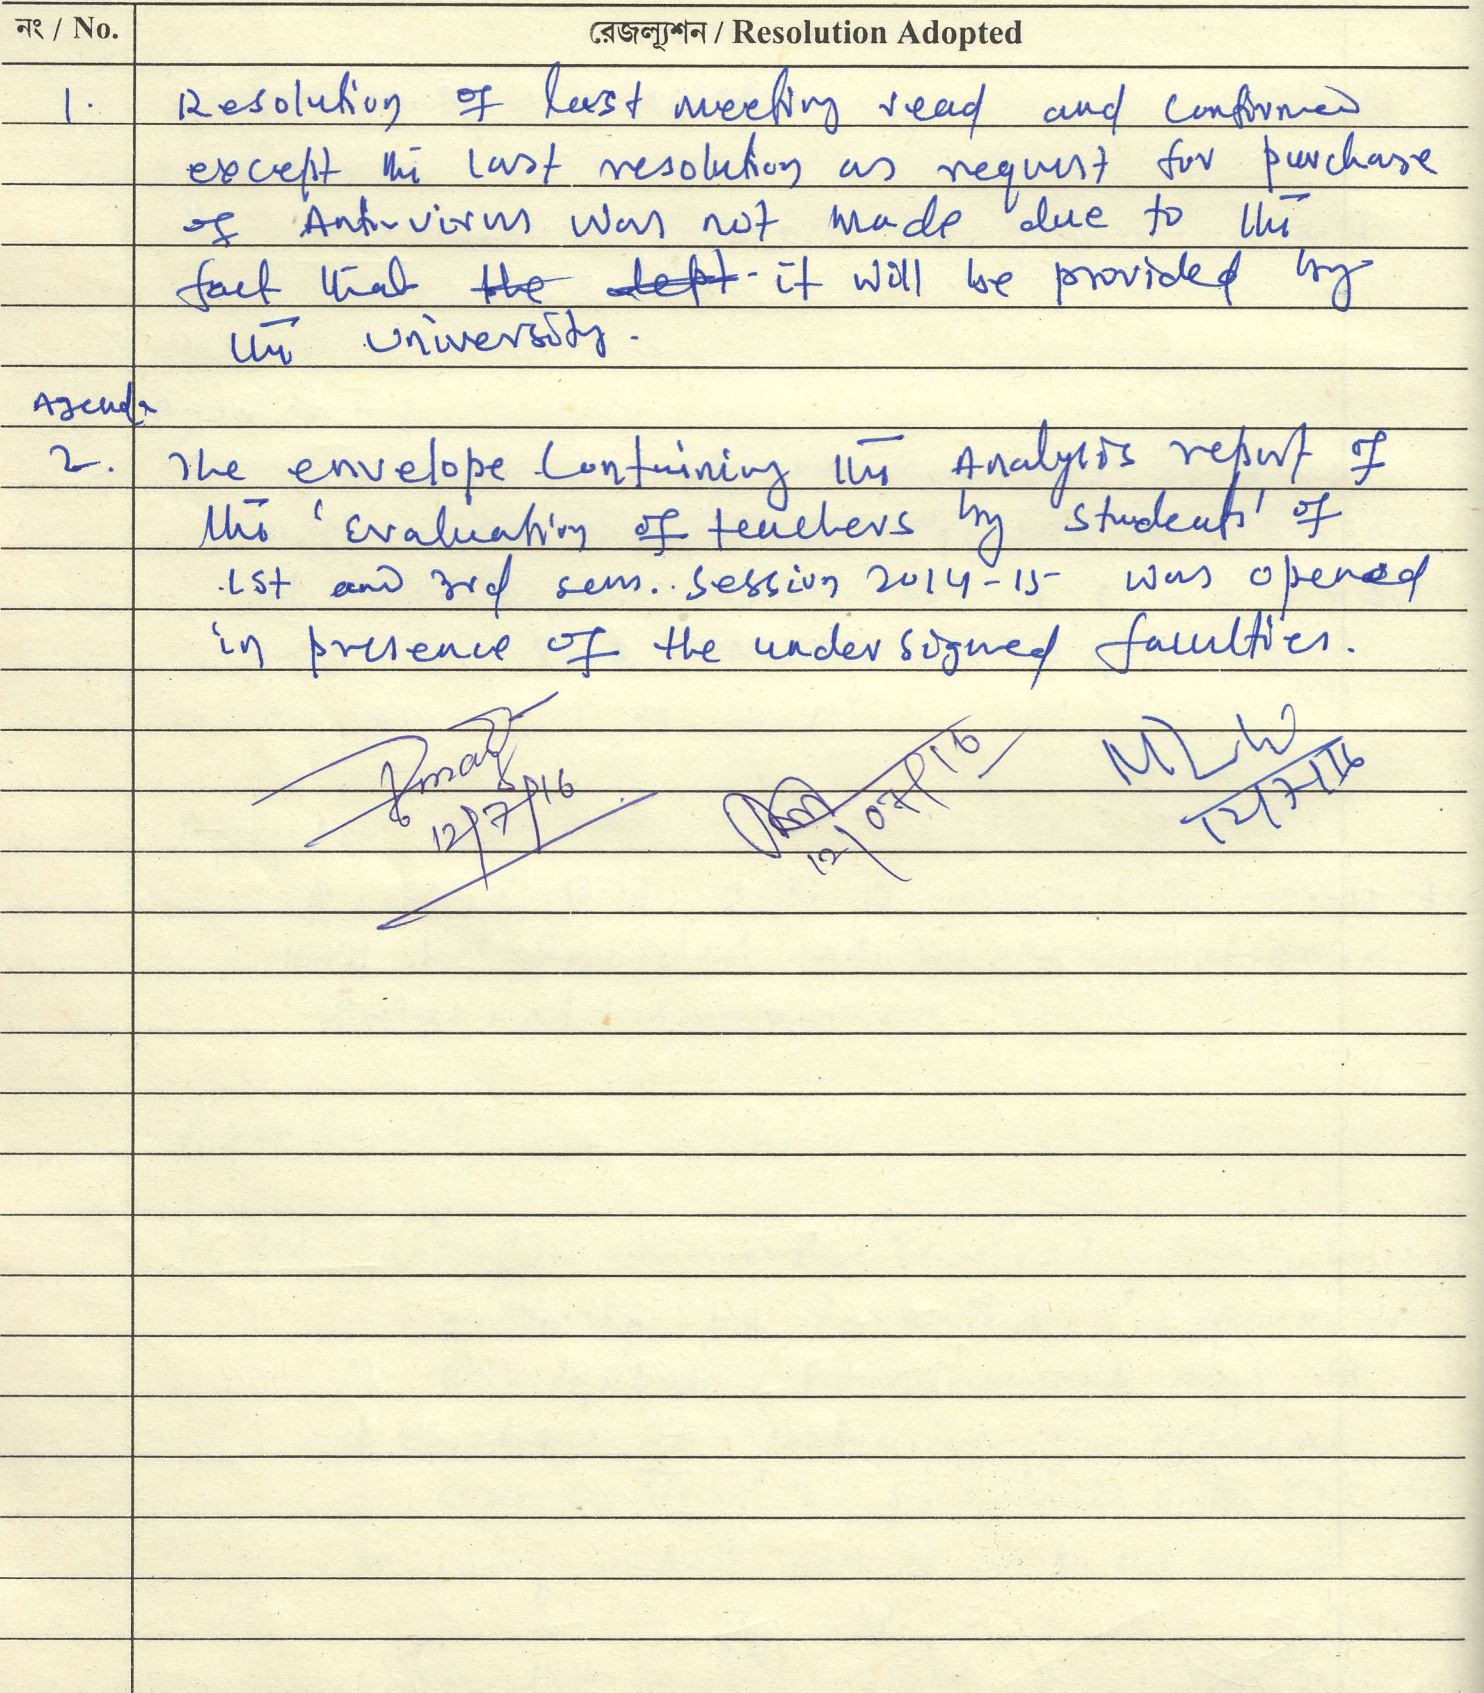 নং / No. রেজল্যুশন / Resolution Adopted
1. Resolution of last meeting read and confirmed
except the last resolution as request for purchase
of Anti-virus was not made due to the
fact that the dept. it will be provided by
the University.
Agenda
2. The envelope containing the Analysis report of
the 'Evaluation of teachers by students' of
1st and 3rd sem. Session 2014-15 was opened
in presence of the undersigned faculties.
12/7/16 12/07/16 12/7/16